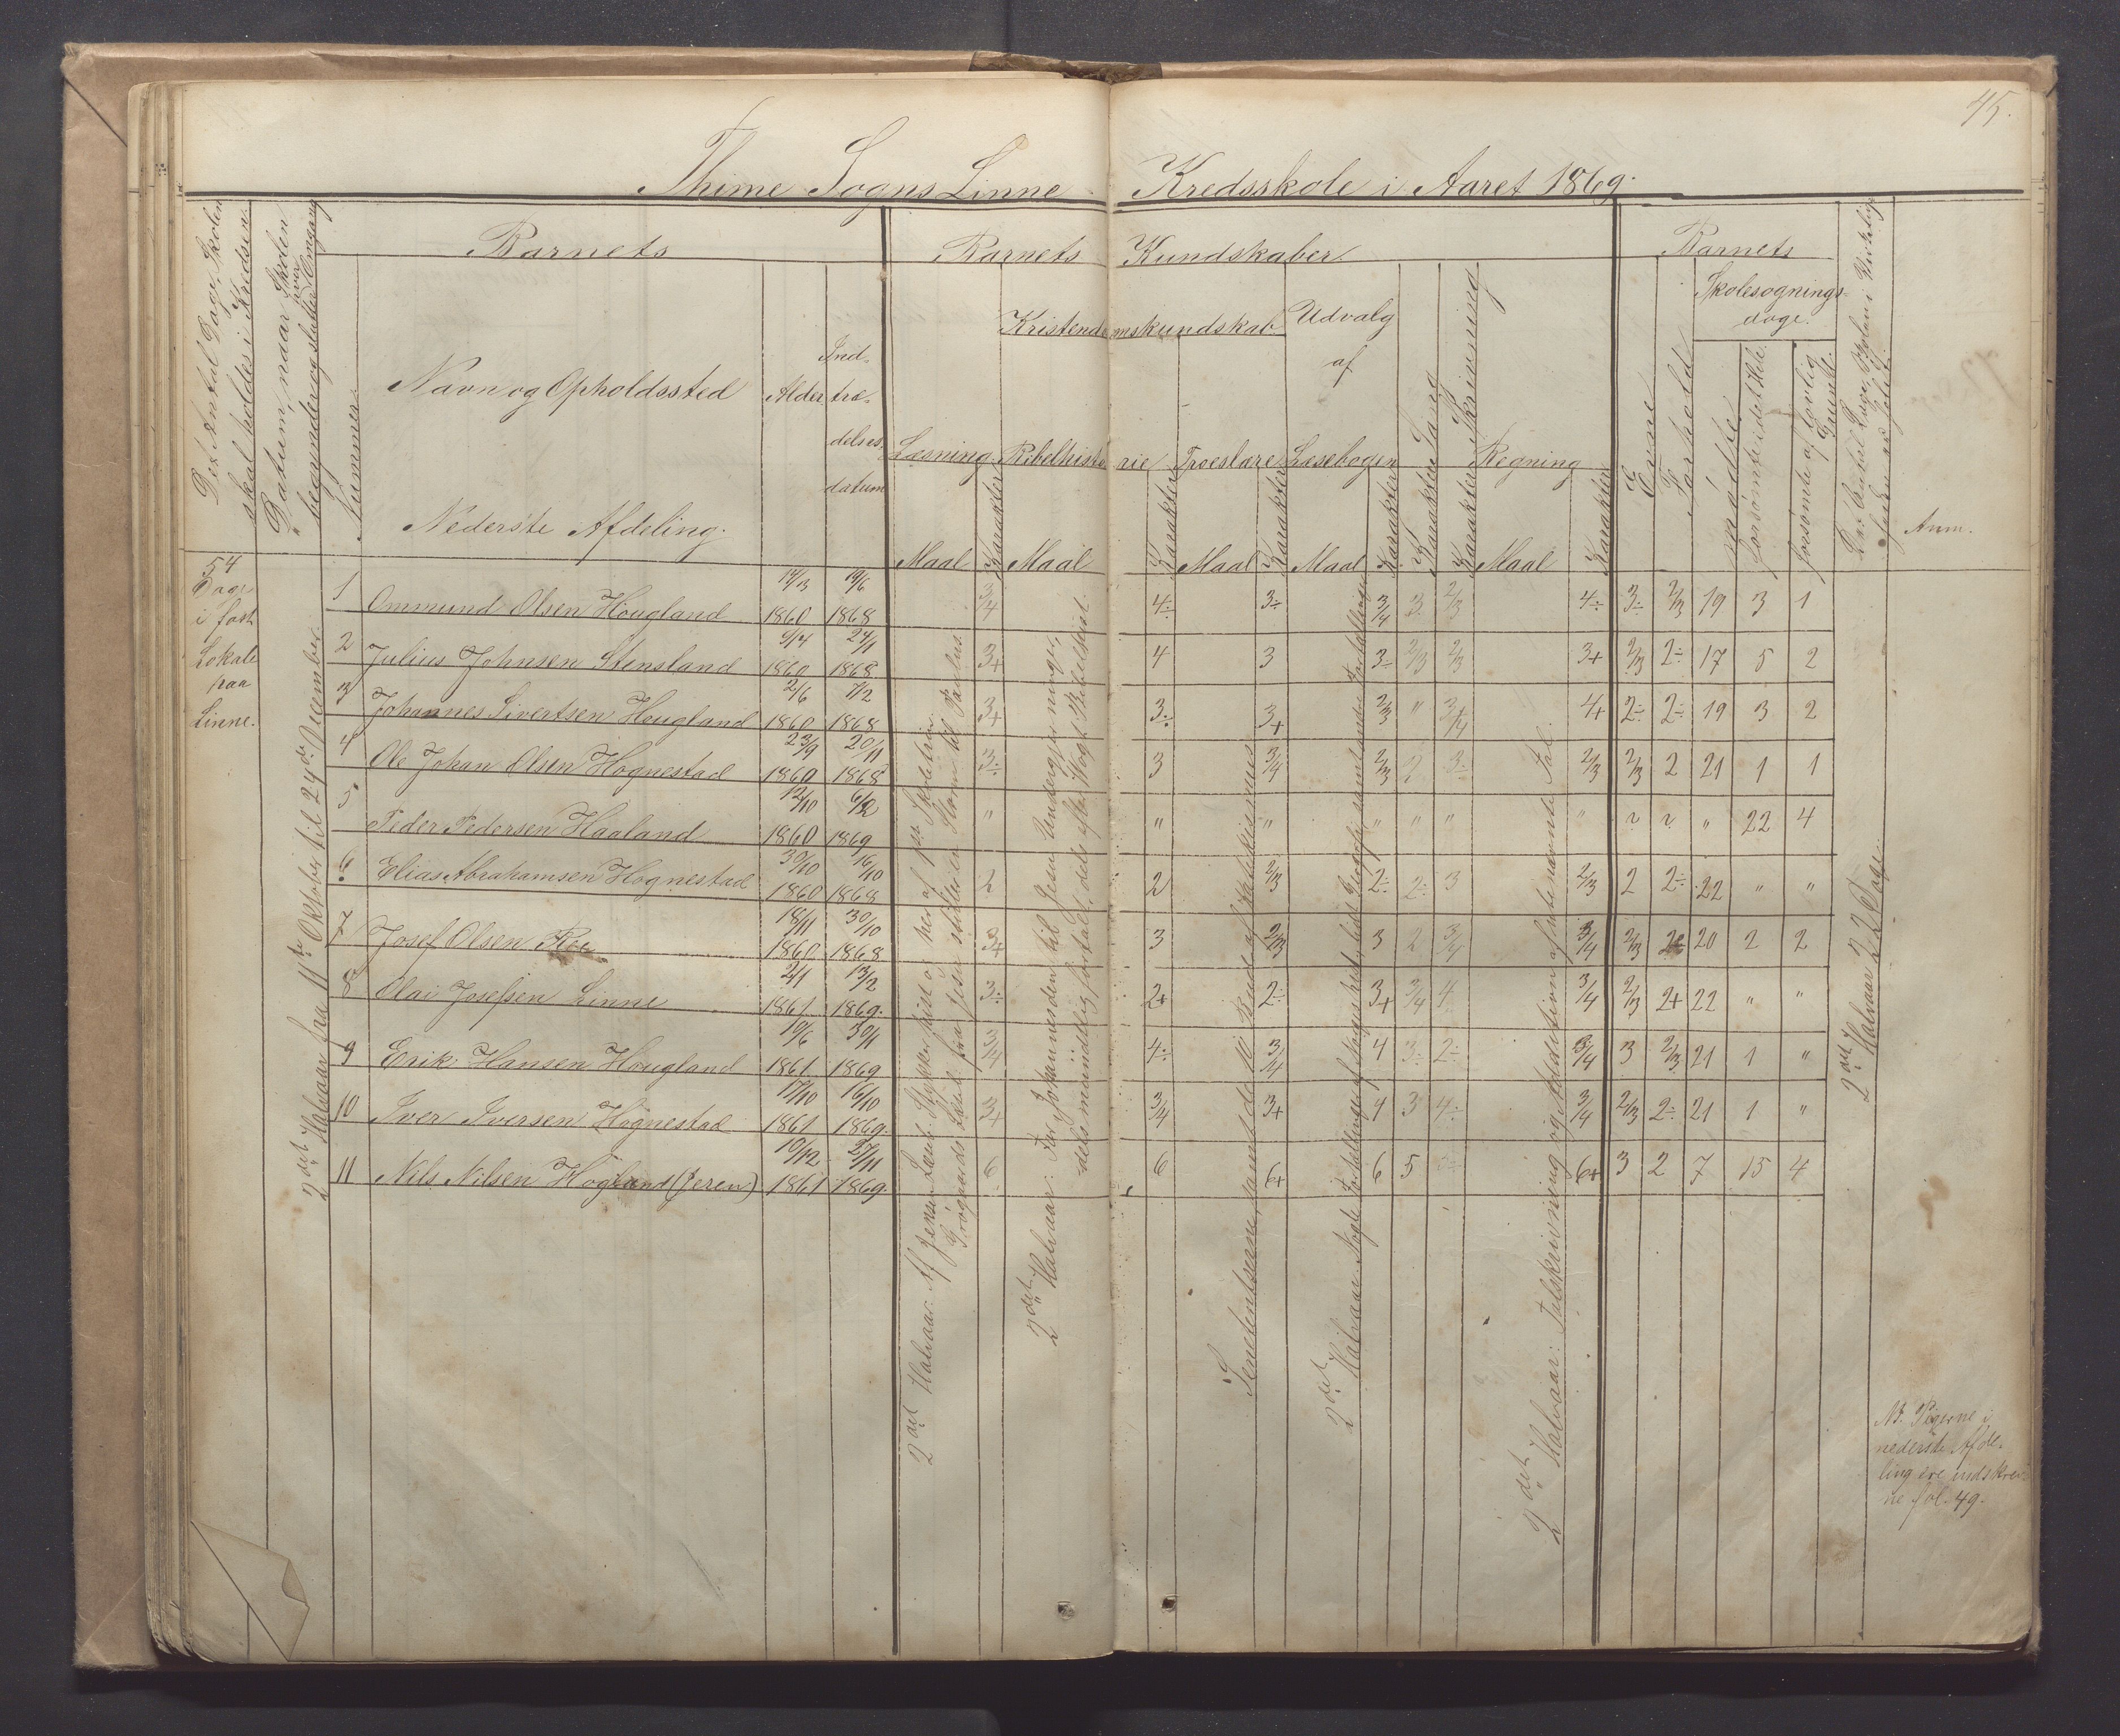 45.
Thime Sogns Linne Kredsskole i Aaret 1869.
Det Antal Dage, Skolen skal holdes i Kredsen.
Datum, naar Skolen begynder og slutter hver Omgang
Nummer.
Barnets
Navn og Opholdssted
Alder
Ind-
træ-
delses-
datum
Nederste Afdeling.
Barnets Kundskaber
Læsning
Kristendomskundskab
Bibelhistorie
Troeslære
Udvalg
af
Læsebogen
Karakter Sang
Karakter Skrivning
Regning
Maal Karakter Maal Karakter Maal Karakter Maal Karakter Maal Karakter
Barnets
Evne
Forhold
Skolesøgnings-
dage.
mødte
forsømte i det Hele.
forsømte af lovlig Grund.
Anm.
54
Dage
i fast
Lokale
paa
Linne.
2det Halvaar fra 11te Oktober til 24de December.
1 Ommund Olsen Hougland 1860 19/6 1868 3/4 4÷ 3÷ 3/4 3 2/3 4÷ 3÷ 2/3 19 3 1
2 Julius Johnsen Stensland 9/4 1860 24/11 1868 3+ 4 3 3÷ 2/3 2/3 3+ 2/3 2÷ 17 5 2
3 Johannes Sivertsen Hougland 2/6 1860 7/2 1868 3+ 3÷ 3+ 2/3 " 4+ 2÷ 2÷ 19 3 2
4 Ole Johan Olsen Hognestad 23/9 1860 20/11 1868 3÷ 3 3/4 2/3 2 3÷ 2/3 2/3 2 21 1 1
5 Peder Pedersen Haaland 12/10 1860 1869 " " " " " " " " 22 4
6 Elias Abrahamsen Hognestad 30/10 1860 16/10 1868 2 2 2/3 2÷ 2÷ 3 2/3 2 2÷ 22 " "
7 Josef Olsen Roe 18/11 1860 30/10 1868 3+ 3 2/3 3 2 3/4 3/4 2/3 20 2 2
8 Olai Josefsen Linne 2/1 1861 13/2 1869. 3÷ 2+ 2÷ 3+ 3/4 4 3/4 2/3 2+ 22 " "
9 Erik Hansen Hougland 10/6 1861 30/11 1869 3/4 4÷ 3/4 4 3÷ 2÷ 3/4 3 2/3 21 1 "
10 Iver Iversen Hognestad 17/10 1861 16/10 1869. 3+ 3/4 3+ 4 3 4÷ 3/4 2/3 2÷ 21 1 "
11 Nils Nilsen Hogland (Jeren) 10/12 1861 27/11 1869. 6 6 6+ 6 5 6+ 3 2 7 15 4
2det Halvaar: Af Jensens Læseb. Stykker hist og her af 1ste Skoletrin.
2det Halvaar: Fra Johannes den til Jesu
dels mundtlig fortalt, dels efter Vogts Bibelhist.
Sententserne samt de 10 Bud af Katekismus
2det Halvaar: Nogle Fortellinger af
2det Halvaar: Talskrivning og Addition af ubenævnte Tal.
2det Halvaar 22 Dage.
NB. Pigerne i
nederste Afde-
ling ere indskrev-
ne fol. 49.